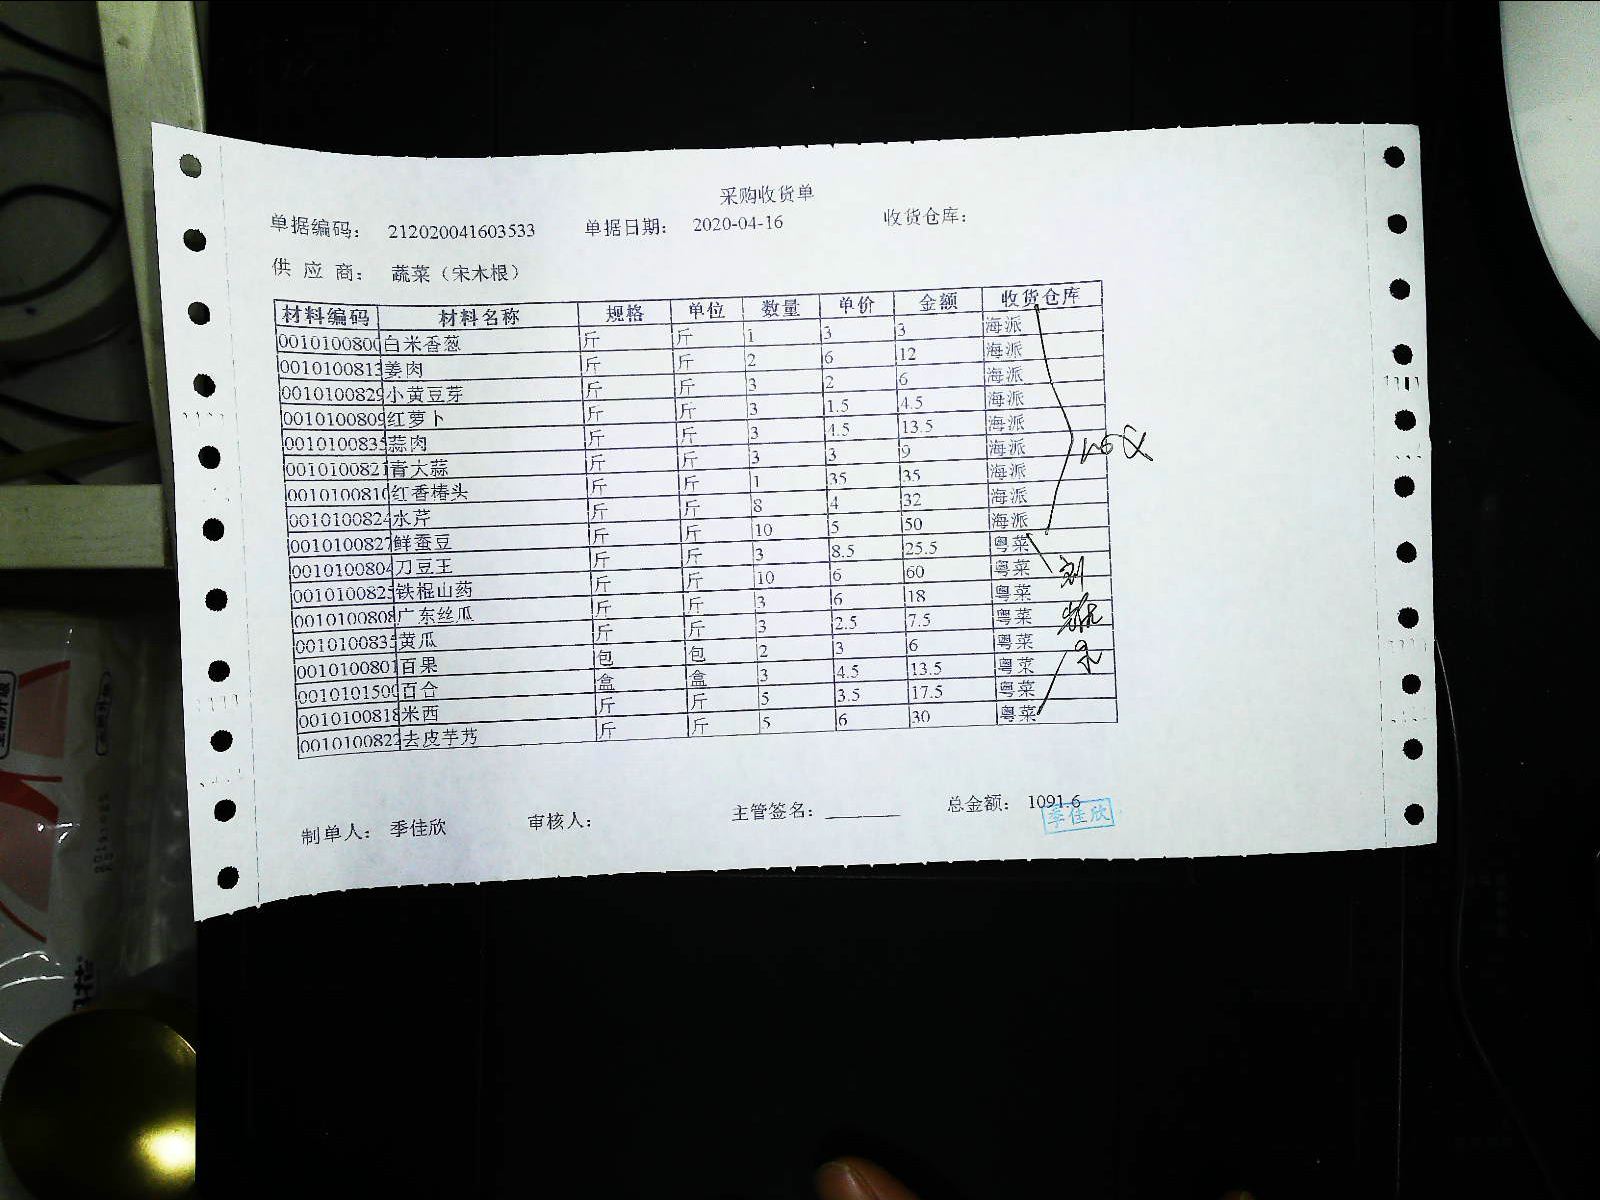 采购收货单
单据编码： 212020041603533 单据日期： 2020-04-16 收货仓库：
供 应 商： 蔬菜（宋木根）
材料编码 材料名称 规格 单位 数量 单价 金额 收货仓库
0010100800 白米香葱 斤 斤 1 3 3 海派
0010100813 姜肉 斤 斤 2 6 12 海派
0010100829 小黄豆芽 斤 斤 3 2 6 海派
0010100809 红萝卜 斤 斤 3 1.5 4.5 海派
0010100835 蒜肉 斤 斤 3 4.5 13.5 海派
0010100821 青大蒜 斤 斤 3 3 9 海派
0010100810 红香椿头 斤 斤 1 35 35 海派
0010100824 水芹 斤 斤 8 4 32 海派
0010100827 鲜蚕豆 斤 斤 10 5 50 海派
0010100804 刀豆王 斤 斤 3 8.5 25.5 粤菜
0010100825 铁棍山药 斤 斤 10 6 60 粤菜
0010100808 广东丝瓜 斤 斤 3 6 18 粤菜
0010100835 黄瓜 斤 斤 3 2.5 7.5 粤菜
0010100801 百果 包 包 2 3 6 粤菜
0010101500 百合 盒 盒 3 4.5 13.5 粤菜
0010100818 米西 斤 斤 5 3.5 17.5 粤菜
0010100822 去皮芋艿 斤 斤 5 6 30 粤菜
制单人： 季佳欣 审核人： 主管签名： 总金额： 1091.6
季佳欣